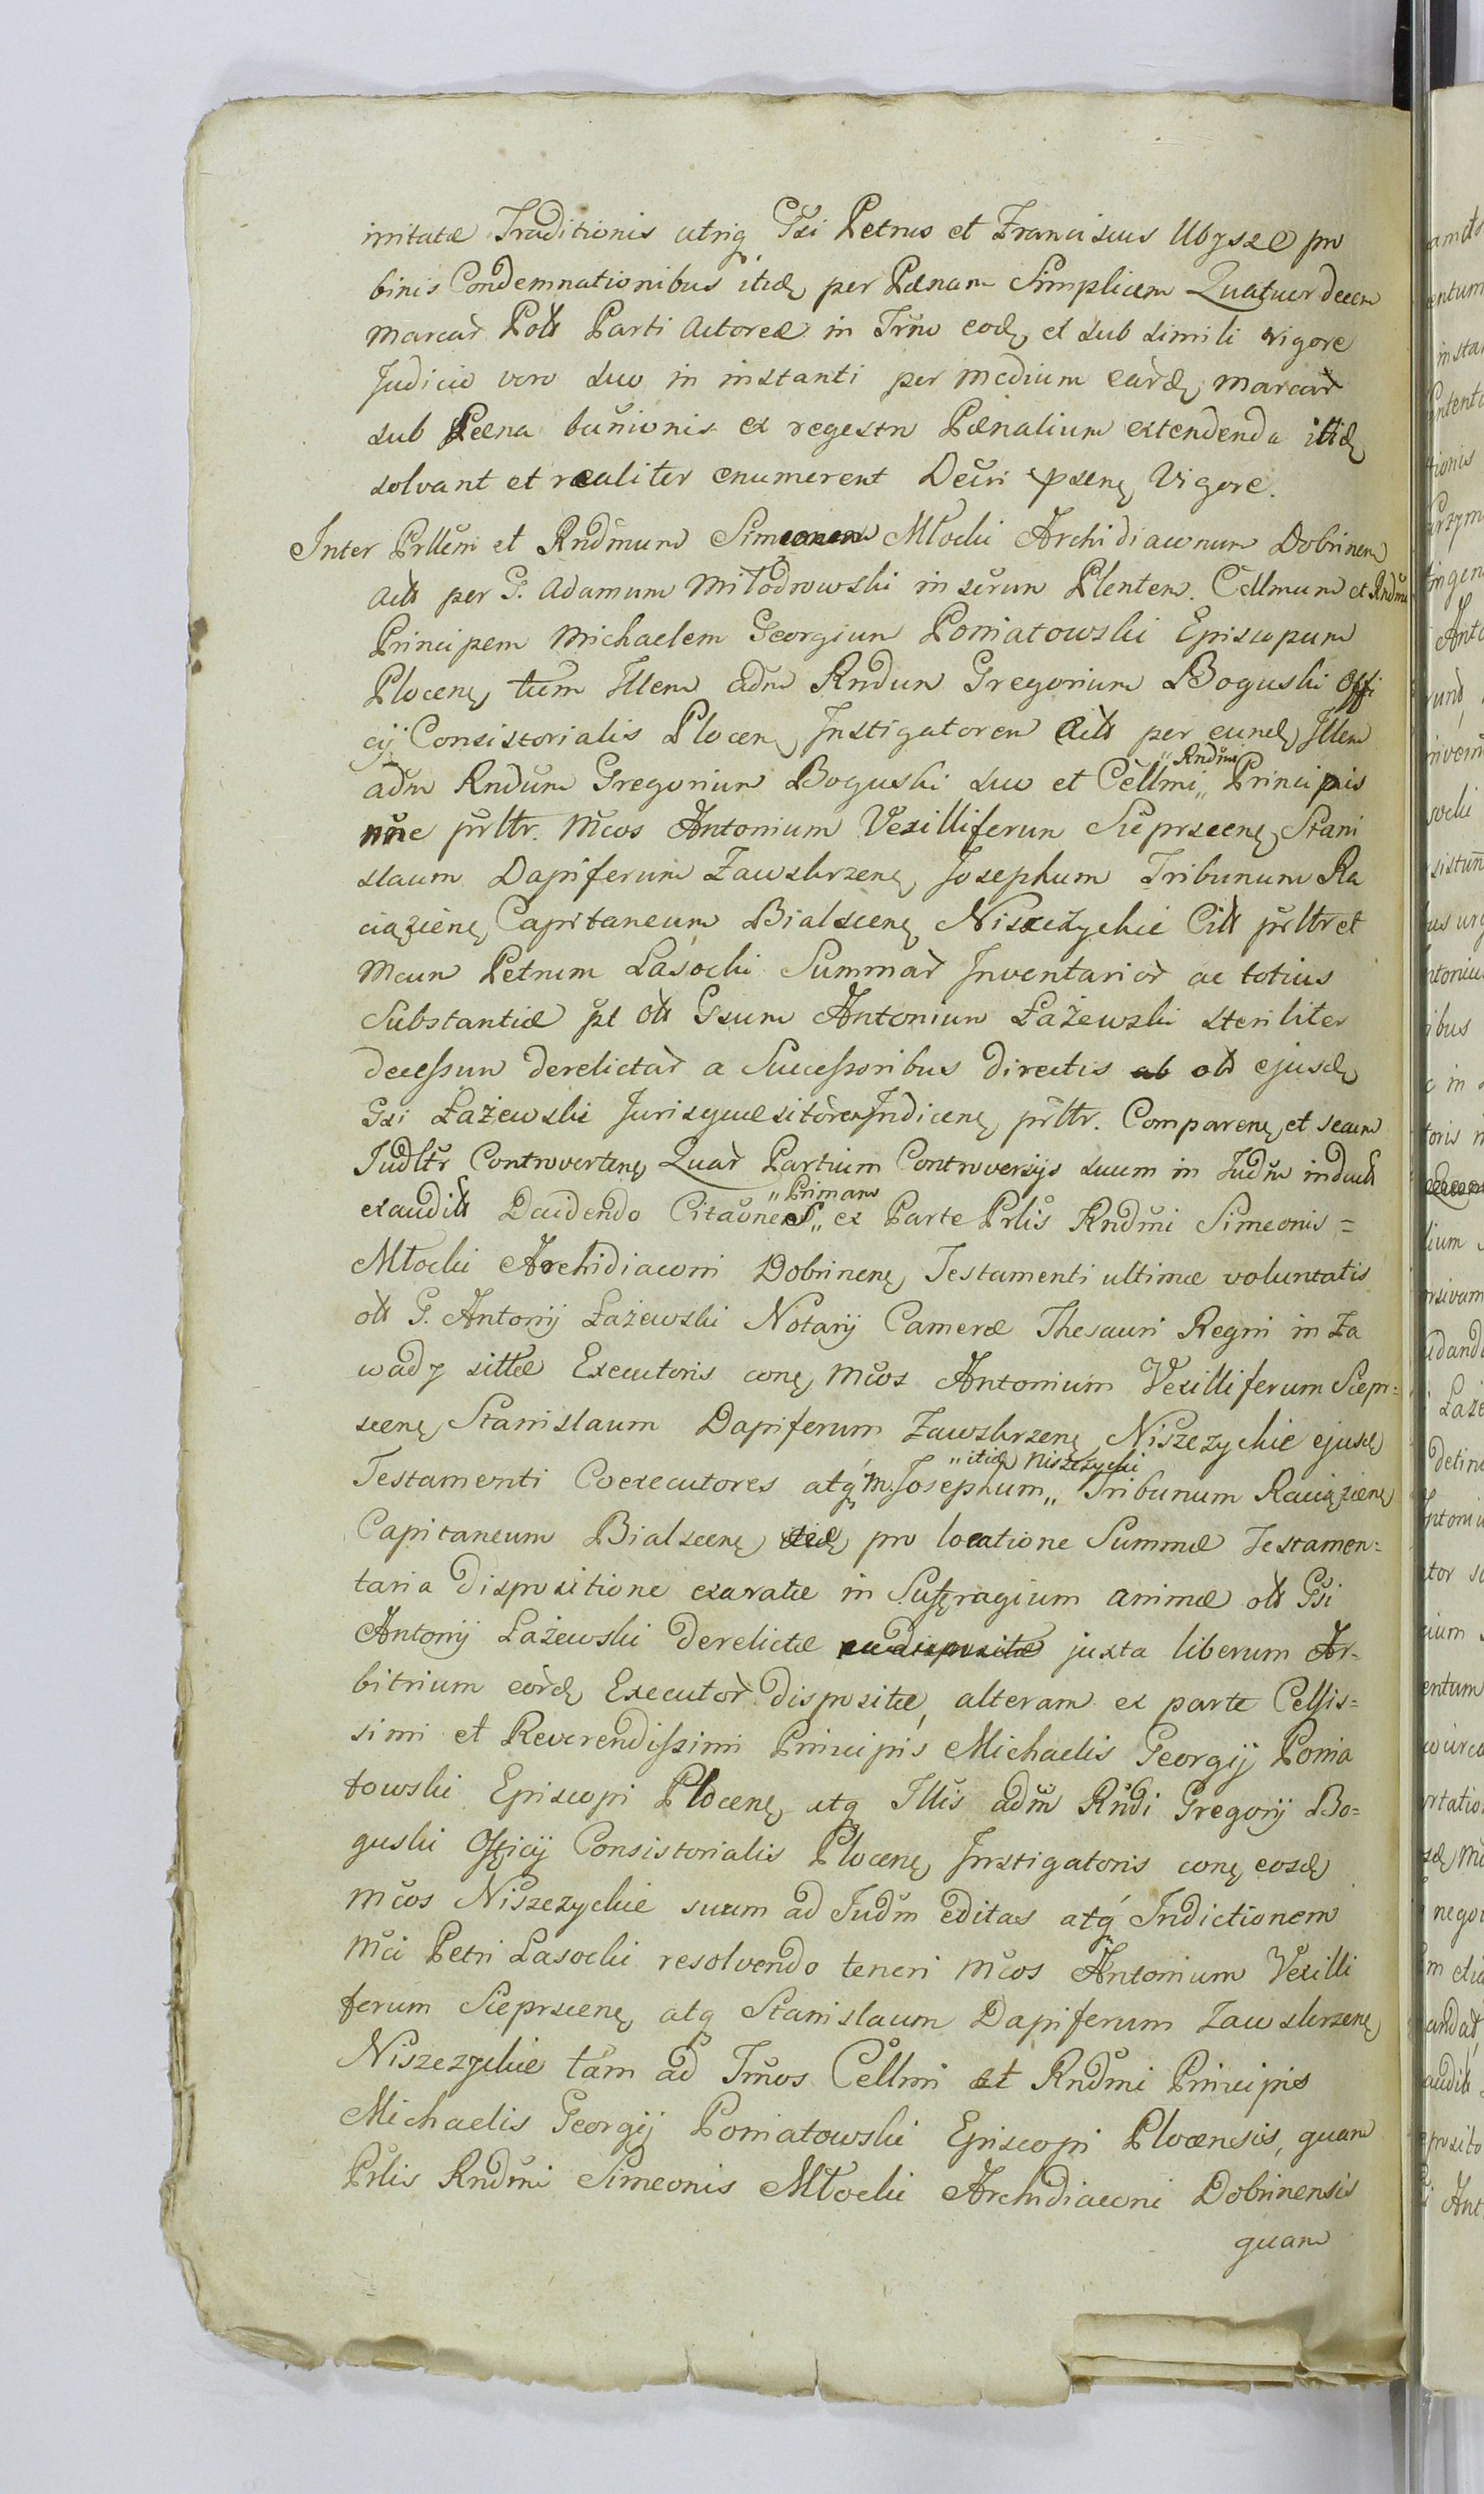 irritatæ Traditionis utriq Gsi Petrus et Franciscus Ubysze pro
binis Condemnationibus itidę per Pænam Simplicem Quatuordecem
Marcar̃ Pots Parti Actoreæ in Trno eodę et sub simili rigore
Judicio vero suo in instanti per medium earđę marcar̃
sub Pæna bannionis ex regestro Pænalium extendenda itidę
solvant et realiter enumerent Decri pñsenę Vigore.
Inter Prllem et Rndmum Simeonem Młocki Archidiaconum Dobrinen
Acts per G. Adamum Miłodrowski in serum Plentem. Cellmum et Rndmu
Principem Michaelem Georgium Poniatowski Episcopum
Plocenę tum Illem adm Rndum Gregorium Boguski Offi
cij Consistorialis Plocenę Instigatorem Acts per eundę Illem
adm Rndum Gregorium Boguski suo et Cellmi „Rndmi„ Principis
nñe prltr. Mcos Antonium Vexilliferum Sieprscenę Stani
slaum Dapiferum Zawskrzenę Josephum Tribunum Ra
ciązienę Capitaneum Bialscenę Niszczyckie Cits prltr et
Mcum Petrum Lasocki Summar̃ Inventarior̃ ac totius
Substantiæ pt ots Gsum Antonium Łażewski steriliter
decessum derelictar̃ a Successoribus directis ots ejusdę
Gsi Łażewski Jurisquæsitorem Indicenę prltr. Comparenę et secum
Judltr Controvertenę Quar̃ Partium Controversijs suum in Judm induct
exaudits Decidendo Citaõnes „Primam„ ex Parte Prlis Rndmi Simeonis =
Młocki Archidiaconi Dobrinenę Testamenti ultimæ voluntatis
ots G. Antonij Łażewski Notarij Cameræ Thesauri Regni in Za
wady sittæ Executoris conę Mcos Antonium Vexilliferum Siepr=
scenę Stanislaum Dapiferum Zawskrzenę Niszczyckie ejusdę
Testamenti Coexecutores atq M. Josephum „itidę Niszczycki„ Tribunum Raciązienę
Capitaneum Bialscenę pro locatione Summæ Testamen=
taria dispositione exaratæ in Suffragium animæ ots Gsi
Antonij Łażewski derelictæ juxta liberum Ar=
bitrium eorđę Executor̃ dispositæ, alteram ex parte Celsis=
simi et Reverendissimi Principis Michaelis Georgij Ponia
towski Episcopi Plocenę atq Illis adm Rndi Gregorij Bo=
guski Officij Consistorialis Plocenę Instigatoris conę eosdę
Mcos Niszczyckie suum ad Judm editas atq Indictionem
Mci Petri Lasocki resolvendo teneri Mcos Antonium Vexilli
ferum Sieprscenę atq Stanislaum Dapiferum Zawskrzenę
Niszczyckie tam ad Trnos Cellmi et Rndmi Principis
Michaelis Georgij Poniatowski Episcopi Plocensis, quam
Prlis Rndmi Simeonis Młocki Archidiaconi Dobrinensis
quam